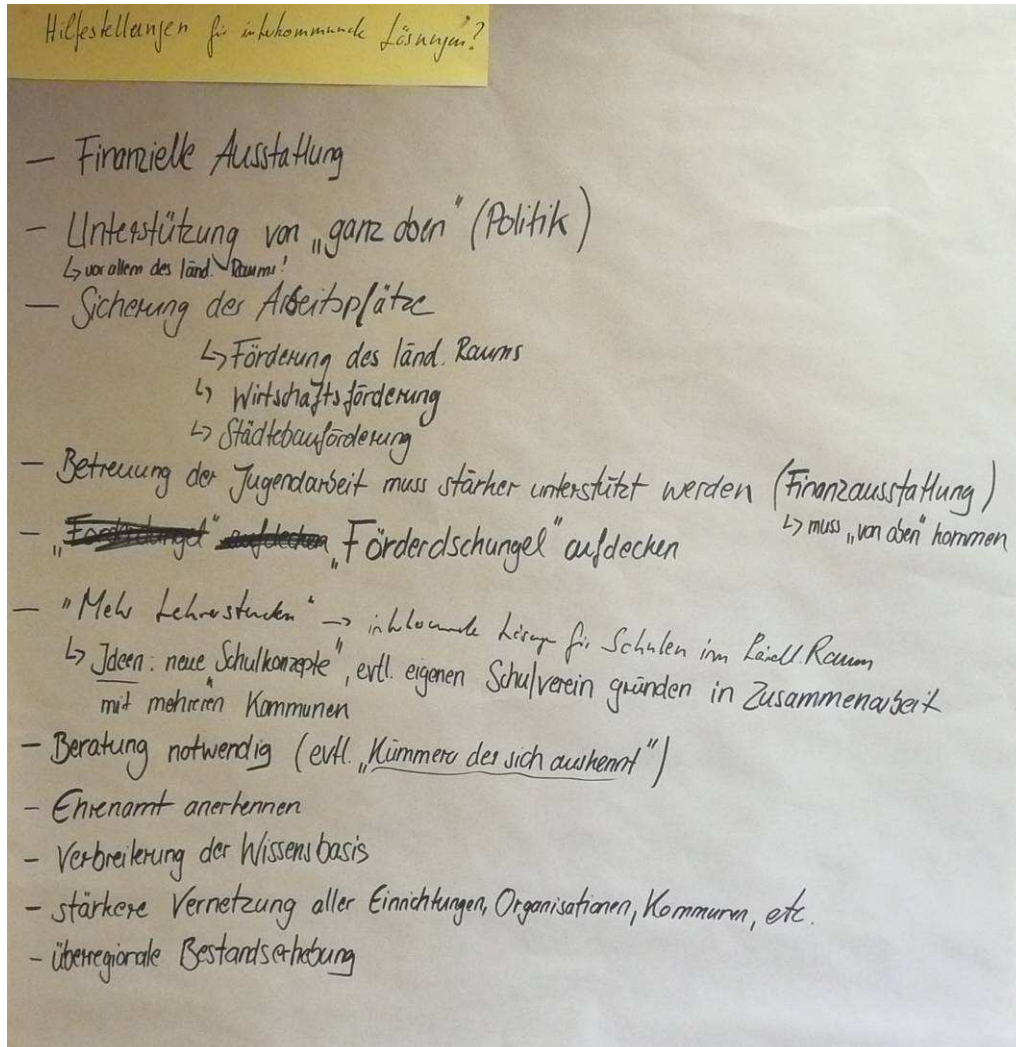 Hilfestellungen für interkommunale Lösungen?
— Finanzielle Ausstattung
— Unterstützung von „ganz oben" (Politik)
↳ vor allem des länd. Raums!
— Sicherung der Arbeitsplätze
↳ Förderung des länd. Raums
↳ Wirtschaftsförderung
↳ Städtebauförderung
— Betreuung der Jugendarbeit muss stärker unterstützt werden (Finanzausstattung)
↳ muss „von oben" kommen
— „Förderdschungel" aufdecken
— "Mehr Lehrerstunden" → interkommunale Lösung für Schulen im Ländl. Raum
↳ Ideen: neue Schulkonzepte", evtl. eigenen Schulverein gründen in Zusammenarbeit
mit mehreren Kommunen
— Beratung notwendig (evtl. „Kümmerer der sich auskennt")
— Ehrenamt anerkennen
— Verbreiterung der Wissensbasis
— stärkere Vernetzung aller Einrichtungen, Organisationen, Kommunen, etc.
— überregionale Bestandserhebung